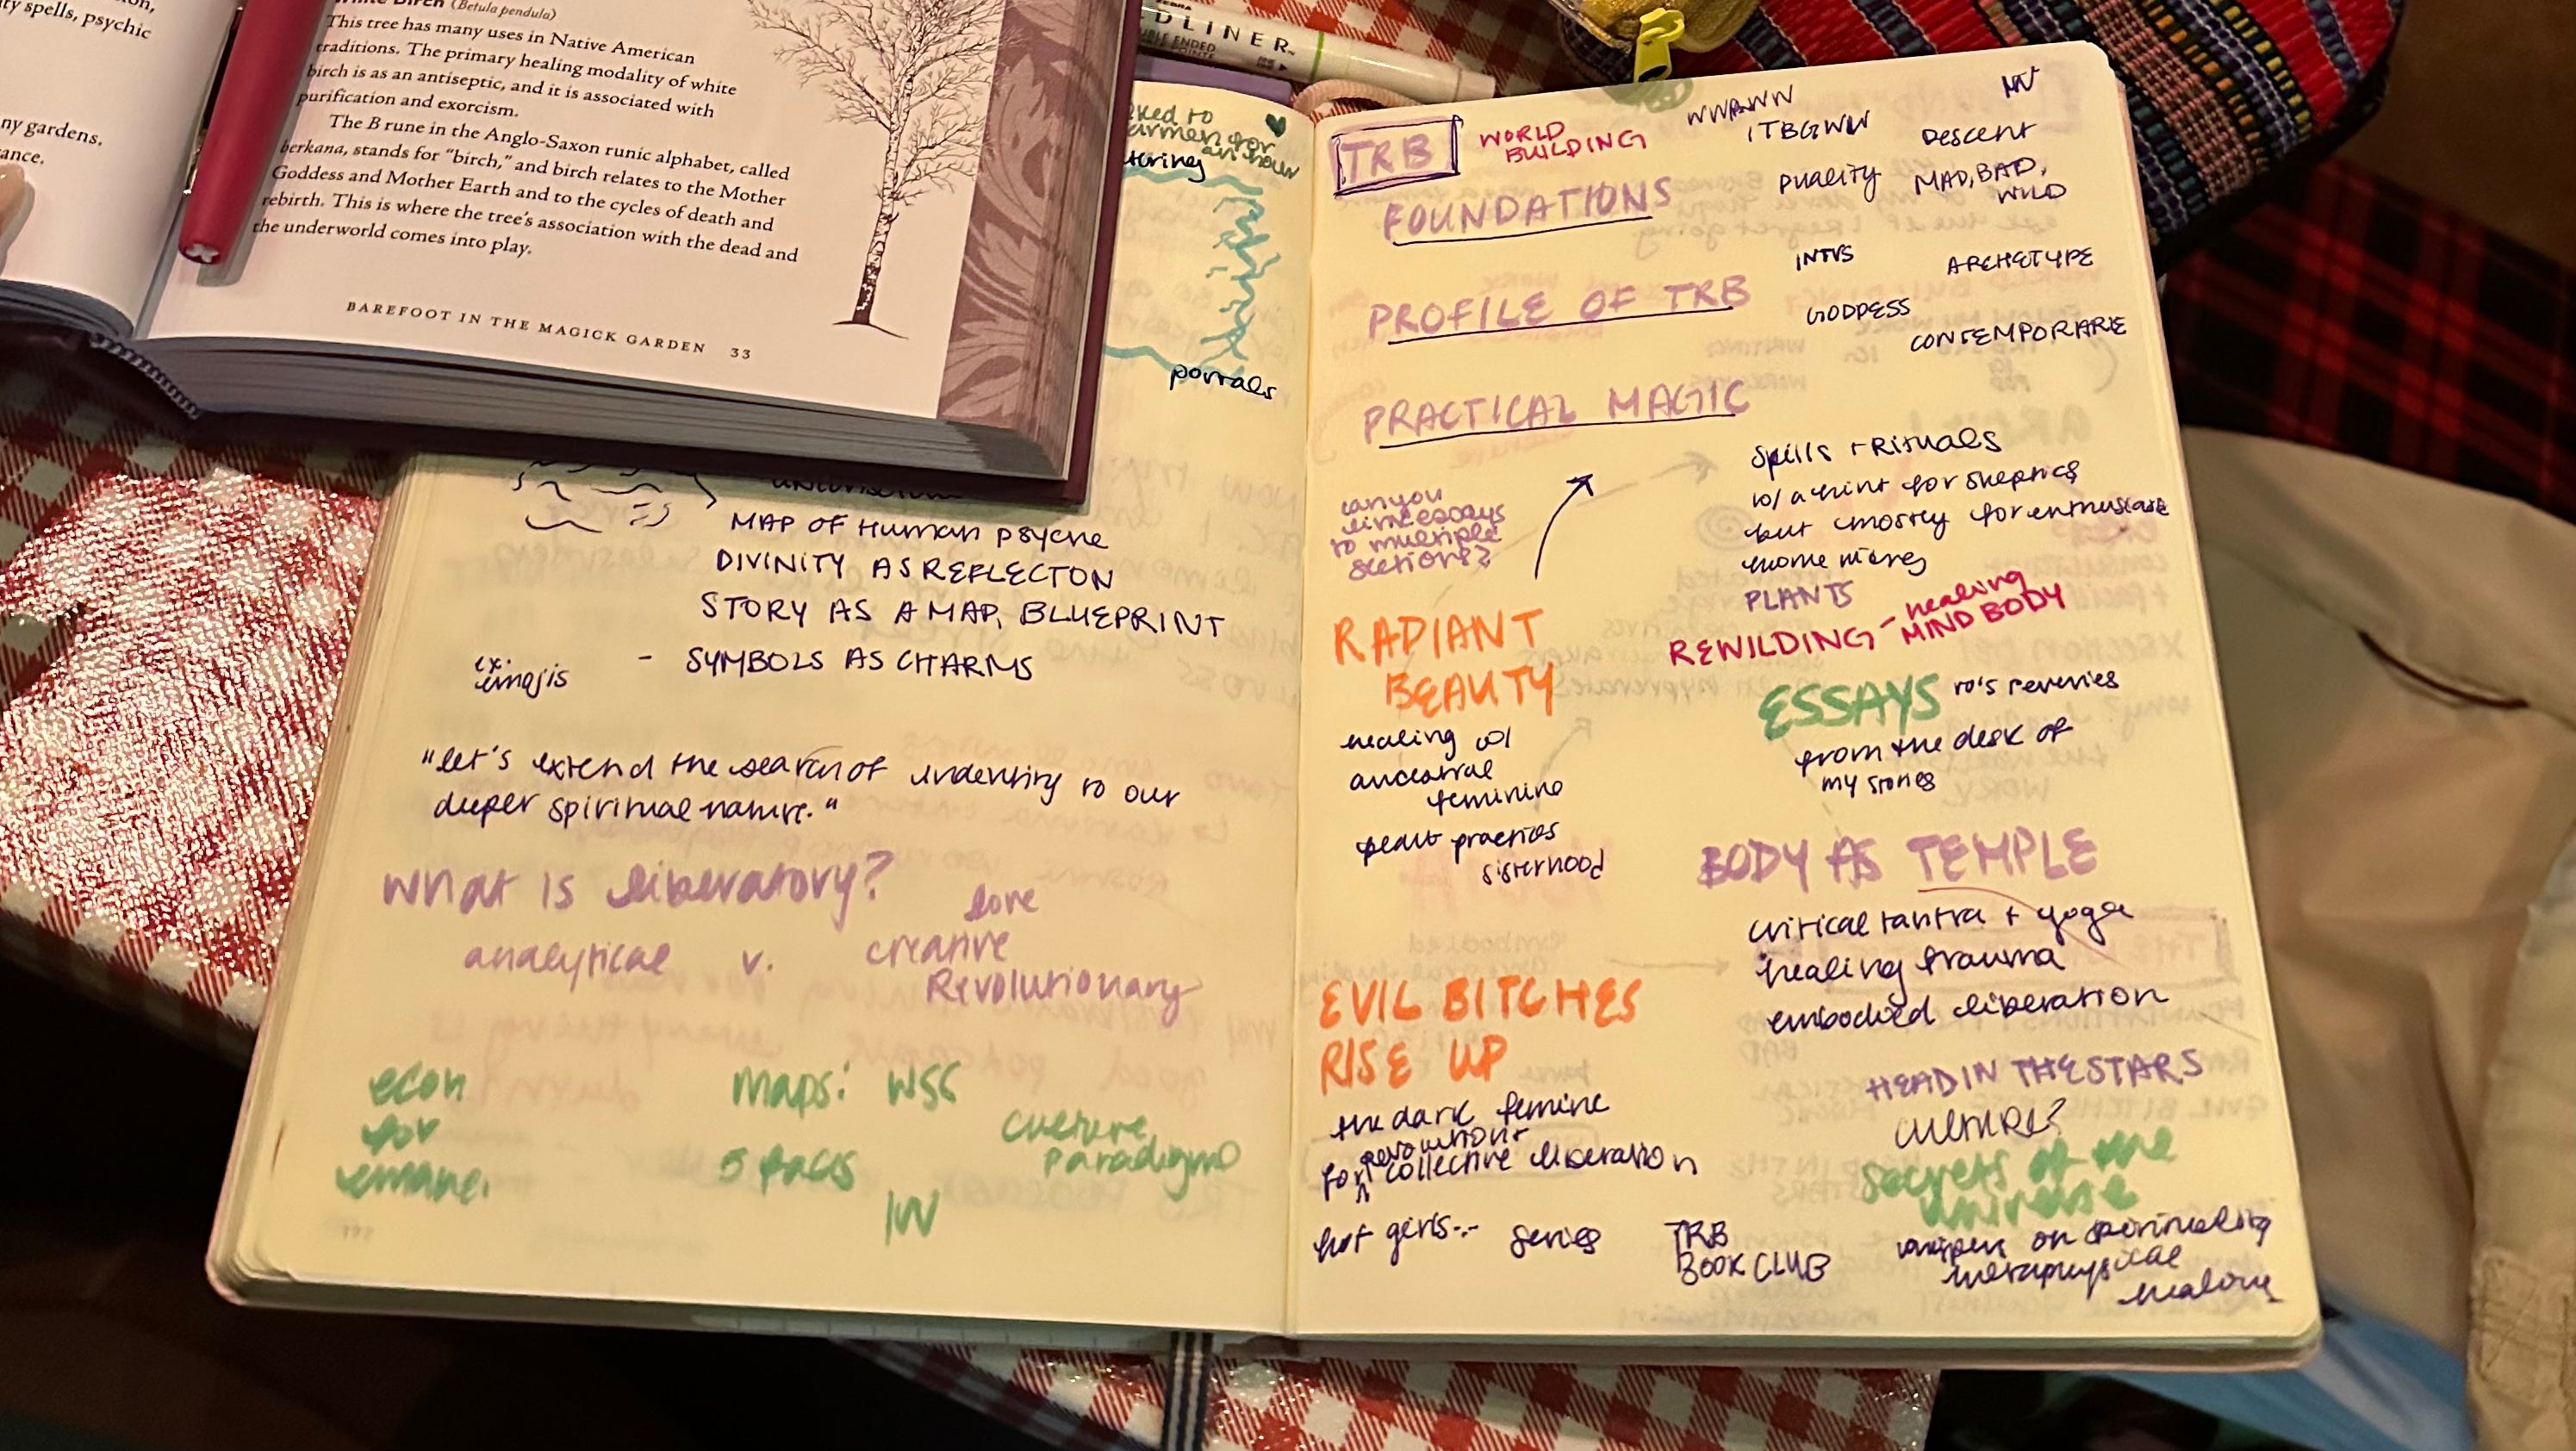 ty spells, psychic
ny gardens.
ance.
White Birch (Betula pendula)
This tree has many uses in Native American
traditions. The primary healing modality of white
birch is as an antiseptic, and it is associated with
purification and exorcism.
The B rune in the Anglo-Saxon runic alphabet, called
berkana, stands for "birch," and birch relates to the Mother
Goddess and Mother Earth and to the cycles of death and
rebirth. This is where the tree's association with the dead and
the underworld comes into play.
BAREFOOT IN THE MAGICK GARDEN 33
ZEBRA
DLINER
BLE ENDED
an hour
portals
MAP OF HUMAN PSYCHE
DIVINITY AS REFLECTON
STORY AS A MAP, BLUEPRINT
ex.
emojis
- SYMBOLS AS CHARMS
"let's extend the search of indentity to our
deeper spiritual nature."
What is liberatory?
love
analytical v. creative
Revolutionary
econ
for
emanc.
Maps: WSC
culture
paradigm
5 faces
IW
TRB
WORLD
BUILDING
WWRWW
ITBGWW
NV
DESCENT
DUALITY
MAD, BAD,
WILD
FOUNDATIONS
INTVS
ARCHETYPE
PROFILE OF TRB
GODDESS
CONTEMPORARIE
PRACTICAL MAGIC
Spells + Rituals
w/ a hint for skeptics
but mostly for enthusiasts
home
PLANTS
can you
link essays
to multiple
sections?
REWILDING - healing
MIND BODY
RADIANT
BEAUTY
healing w/
ancestral
feminine
beaut practices
sisterhood
ESSAYS ro's reveries
from the desk of
my stories
BODY AS TEMPLE
critical tantra + yoga
healing trauma
embodied liberation
EVIL BITCHES
RISE UP
the dark femine
for collective liberation
hot girls... series
TRB
BOOK CLUB
HEAD IN THE STARS
CULTURE?
secrets of the
universe
on spirituality
metaphysical